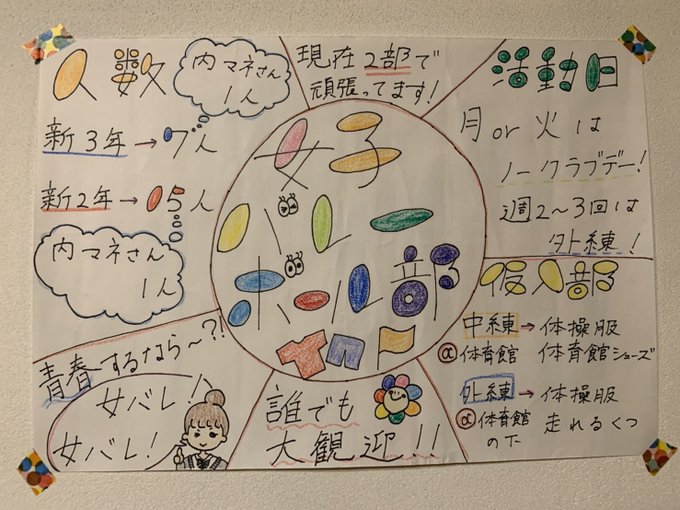 人数
内マネさん
1人
新3年→7人
新2年→15人
内マネさん
1人
現在2部で
頑張ってます!
活動日
月or火は
ノークラブデー!
週2~3回は
外練!
女子
バレー
ボール部
仮入部
中練→体操服
@体育館 体育館シューズ
外練→体操服
@体育館 走れるくつ
の下
青春するなら~?!
女バレ!
女バレ!
誰でも
大観迎!!